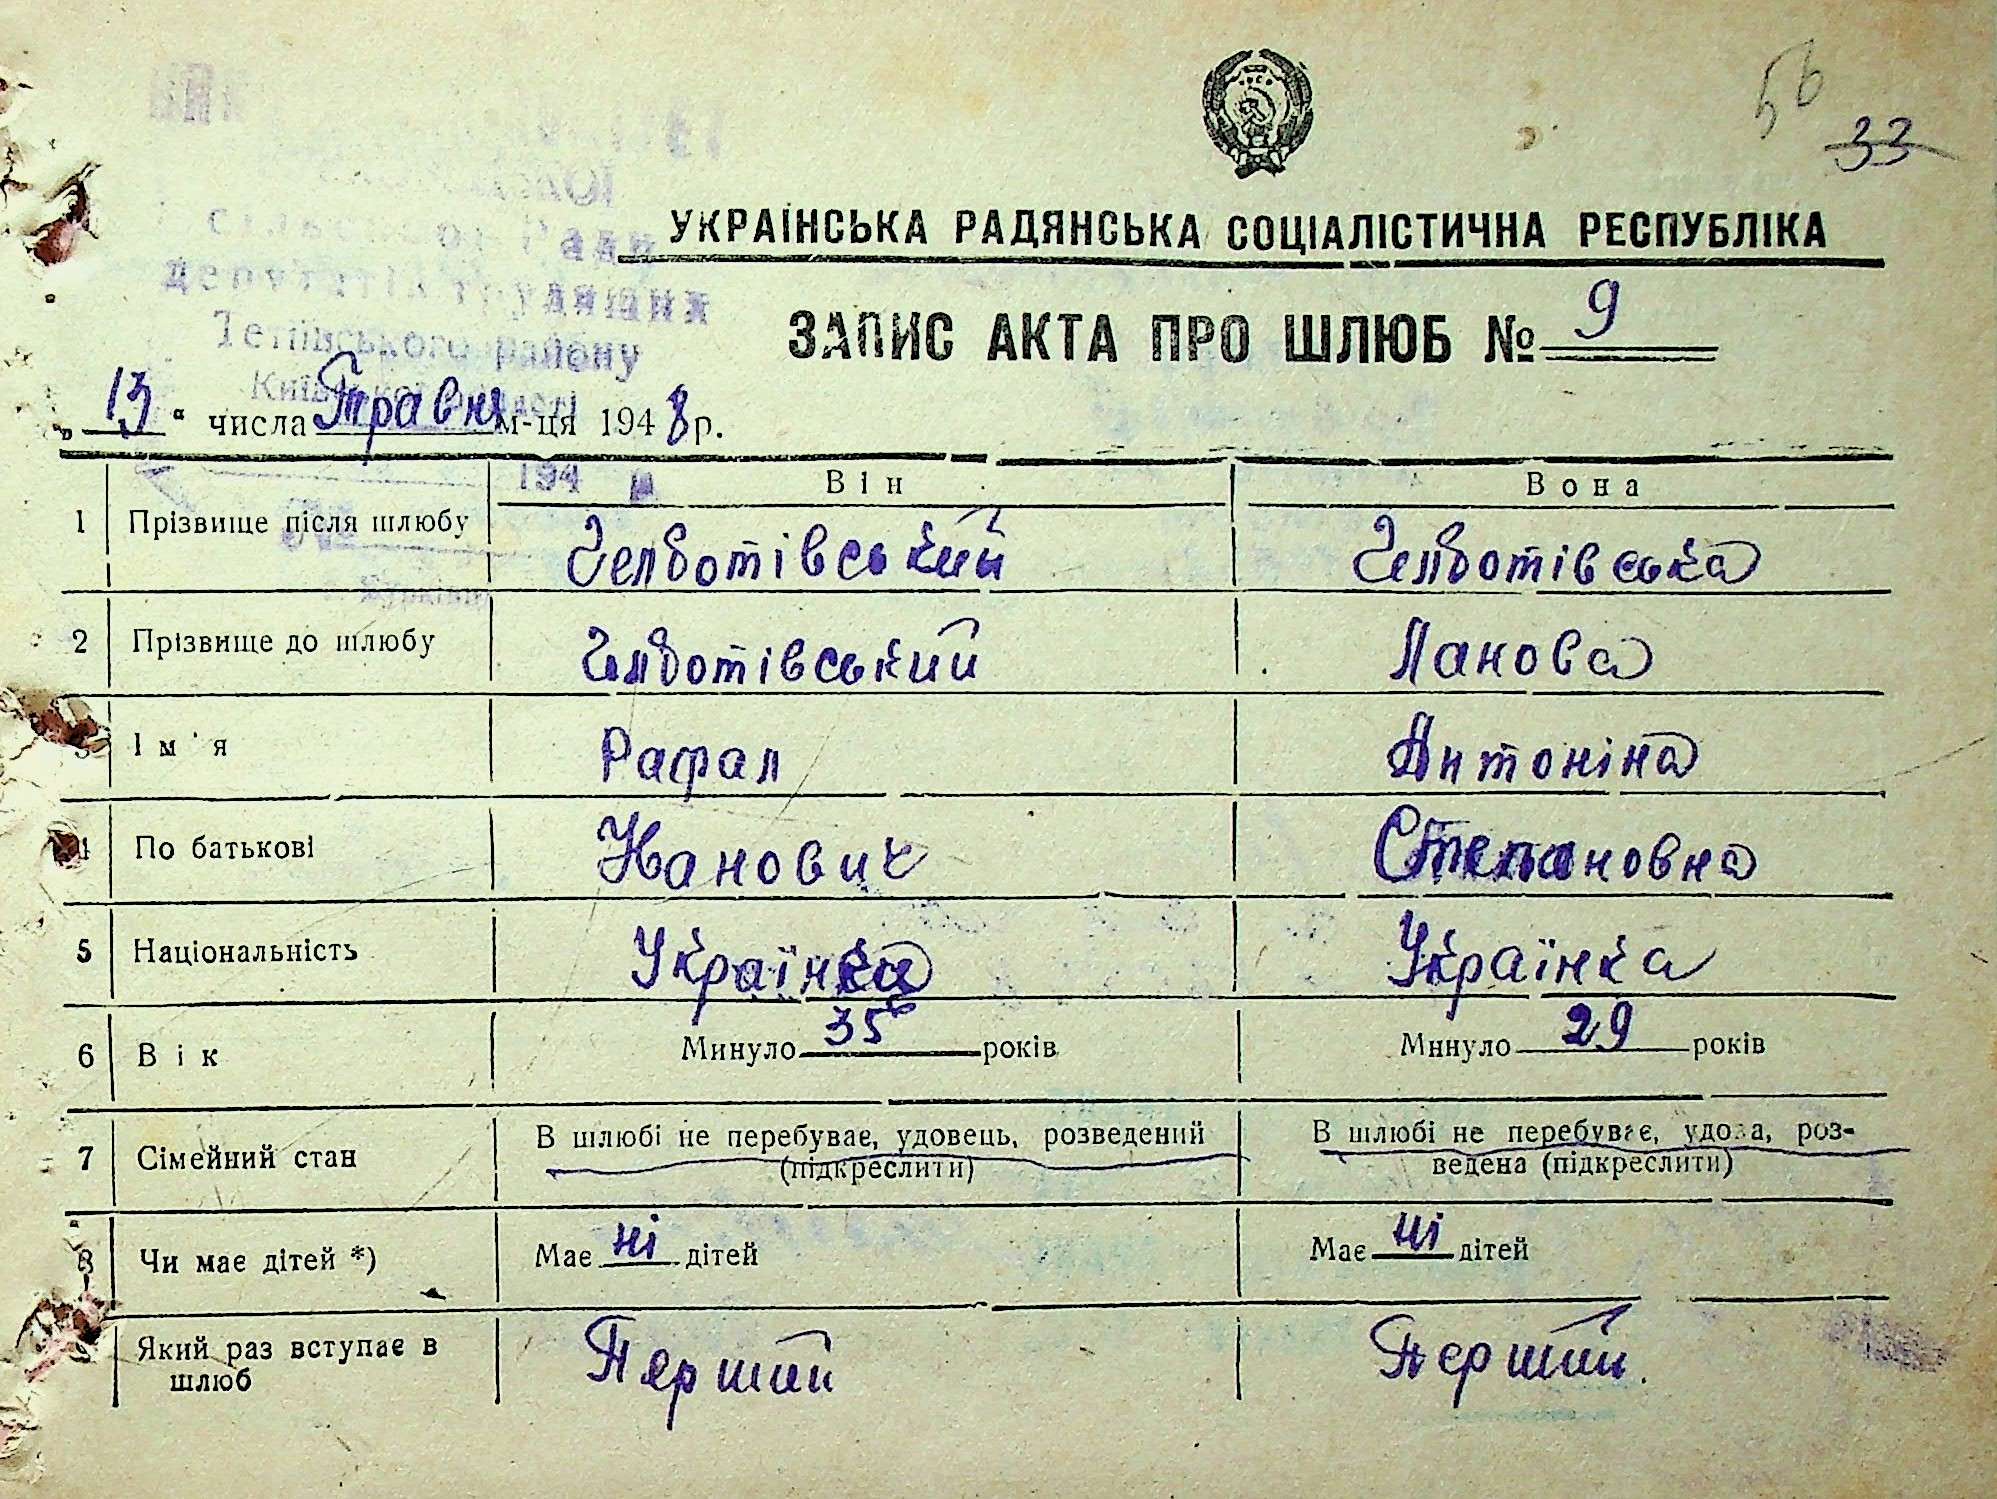 56
33
УКРАЇНСЬКА РАДЯНСЬКА СОЦІАЛІСТИЧНА РЕСПУБЛІКА
сільської Ради
депутатів трудящих
Тетіївського району
Київської області
194
ЗАПИС АКТА ПРО ШЛЮБ № 9
„13“ числа Травня м-ця 1948 р.
Він Вона
1 Прізвище після шлюбу Челботівський Челботівська
2 Прізвище до шлюбу Челботівський Панова
3 Ім'я Рафал Антоніна
4 По батькові Іванович Степановна
5 Національність Українка Українка
6 Вік Минуло 35 років Минуло 29 років
7 Сімейний стан В шлюбі не перебуває, удовець, розведений (підкреслити) В шлюбі не перебуває, удова, роз-
ведена (підкреслити)
8 Чи має дітей *) Має ні дітей Має ні дітей
9 Який раз вступає в шлюб Перший Перший.